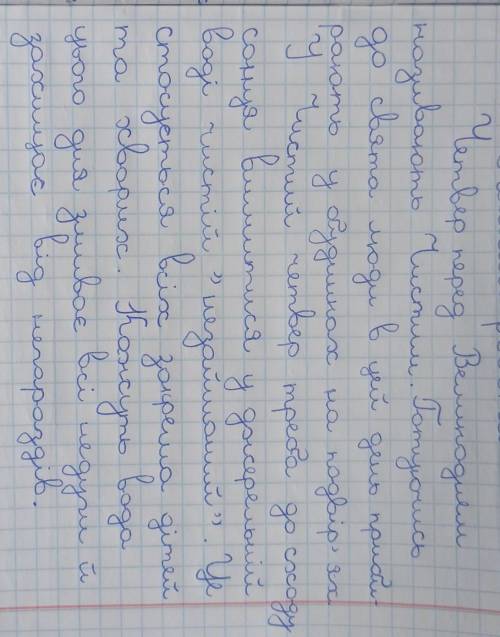 Четвер перед Великоднем
називають Чистим. Готуючись
до свята люди в цей день приби-
рають у будинках на подвір'ях.
У Чистий четвер треба до сходу
сонця вимитися у джерельній
воді чистій „незайманій”. Це
стосується всіх закрема дітей
та хворих. Кажуть вода
цього дня змиває всі недуги й
захищає від негараздів.